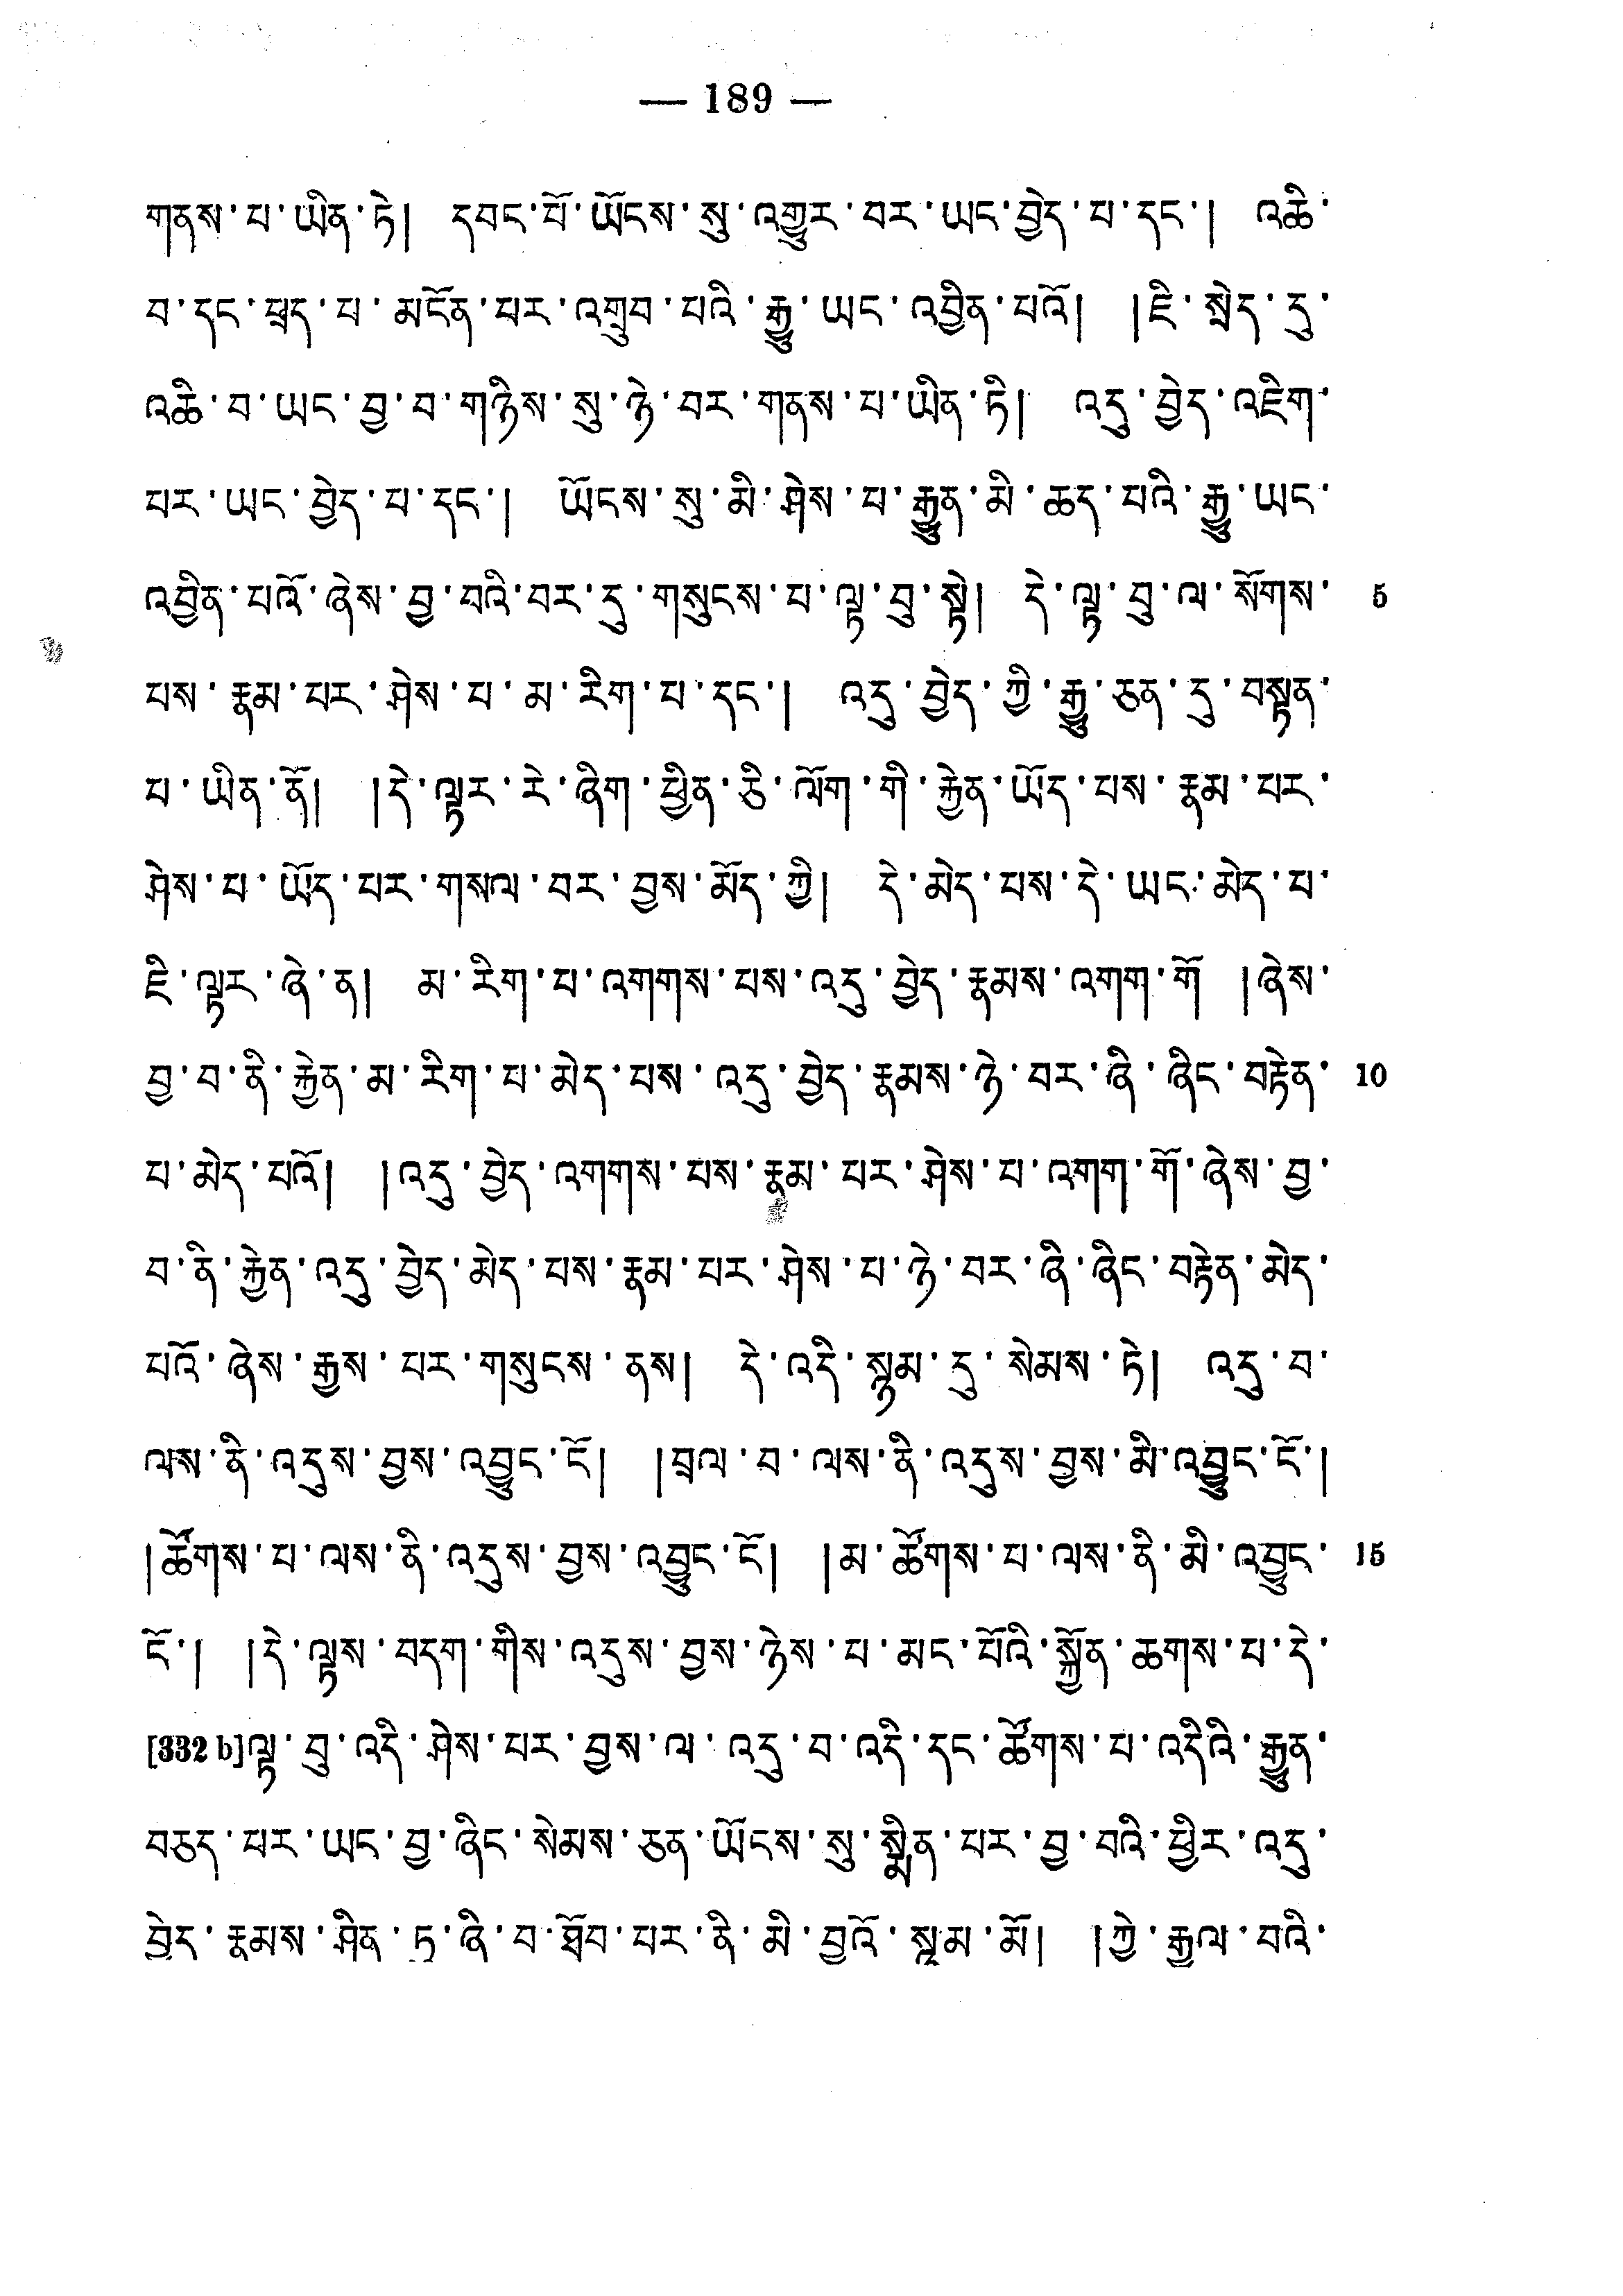 — 189 —
གནས་པ་ཡིན་ཏེ། དབང་པོ་ཡོངས་སུ་འགྱུར་བར་ཡང་བྱེད་པ་དང་། འཆི་
བ་དང་ཕྲད་པ་མངོན་པར་འགྲུབ་པའི་རྒྱུ་ཡང་འབྱིན་པའོ། །ཇི་སྲེད་དུ་
འཆི་བ་ཡང་བྱ་བ་གཉིས་སུ་ཉེ་བར་གནས་པ་ཡིན་ཏེ། འདུ་བྱེད་འཇིག་
པར་ཡང་བྱེད་པ་དང་། ཡོངས་སུ་མི་ཤེས་པ་རྒྱུན་མི་ཆད་པའི་རྒྱུ་ཡང་
འབྱིན་པའོ་ཞེས་བྱ་བའི་བར་དུ་གསུངས་པ་ལྟ་བུ་སྟེ། དེ་ལྟ་བུ་ལ་སོགས་ 5
པས་རྣམ་པར་ཤེས་པ་མ་རིག་པ་དང་། འདུ་བྱེད་ཀྱི་རྒྱུ་ཅན་དུ་བསྟན་
པ་ཡིན་ནོ། །དེ་ལྟར་རེ་ཞིག་ཕྱིན་ཅི་ལོག་གི་རྐྱེན་ཡོད་པས་རྣམ་པར་
ཤེས་པ་ཡོད་པར་གསལ་བར་བྱས་མོད་ཀྱི། དེ་མེད་པས་དེ་ཡང་མེད་པ་
ཇི་ལྟར་ཞེ་ན། མ་རིག་པ་འགགས་པས་འདུ་བྱེད་རྣམས་འགག་གོ །ཞེས་
བྱ་བ་ནི་རྐྱེན་མ་རིག་པ་མེད་པས་འདུ་བྱེད་རྣམས་ཉེ་བར་ཞི་ཞིང་བརྟེན་ 10
པ་མེད་པའོ། །འདུ་བྱེད་འགགས་པས་རྣམ་པར་ཤེས་པ་འགག་གོ་ཞེས་བྱ་
བ་ནི་རྐྱེན་འདུ་བྱེད་མེད་པས་རྣམ་པར་ཤེས་པ་ཉེ་བར་ཞི་ཞིང་བརྟེན་མེད་
པའོ་ཞེས་རྒྱས་པར་གསུངས་ནས། དེ་འདི་སྙམ་དུ་སེམས་ཏེ། འདུ་བ་
ལས་ནི་འདུས་བྱས་འབྱུང་ངོ། །བྲལ་བ་ལས་ནི་འདུས་བྱས་མི་འབྱུང་ངོ་།
།ཚོགས་པ་ལས་ནི་འདུས་བྱས་འབྱུང་ངོ། །མ་ཚོགས་པ་ལས་ནི་མི་འབྱུང་ 15
ངོ་། །དེ་ལྟས་བདག་གིས་འདུས་བྱས་ཉེས་པ་མང་པོའི་སྐྱོན་ཆགས་པ་དེ་
[332 b]ལྟ་བུ་འདི་ཤེས་པར་བྱས་ལ་འདུ་བ་འདི་དང་ཚོགས་པ་འདིའི་རྒྱུན་
བཅད་པར་ཡང་བྱ་ཞིང་སེམས་ཅན་ཡོངས་སུ་སྨིན་པར་བྱ་བའི་ཕྱིར་འདུ་
བྱེད་རྣམས་ཤིན་ཏུ་ཞི་བ་ཐོབ་པར་ནི་མི་བྱའོ་སྙམ་མོ། །ཀྱེ་རྒྱལ་བའི་